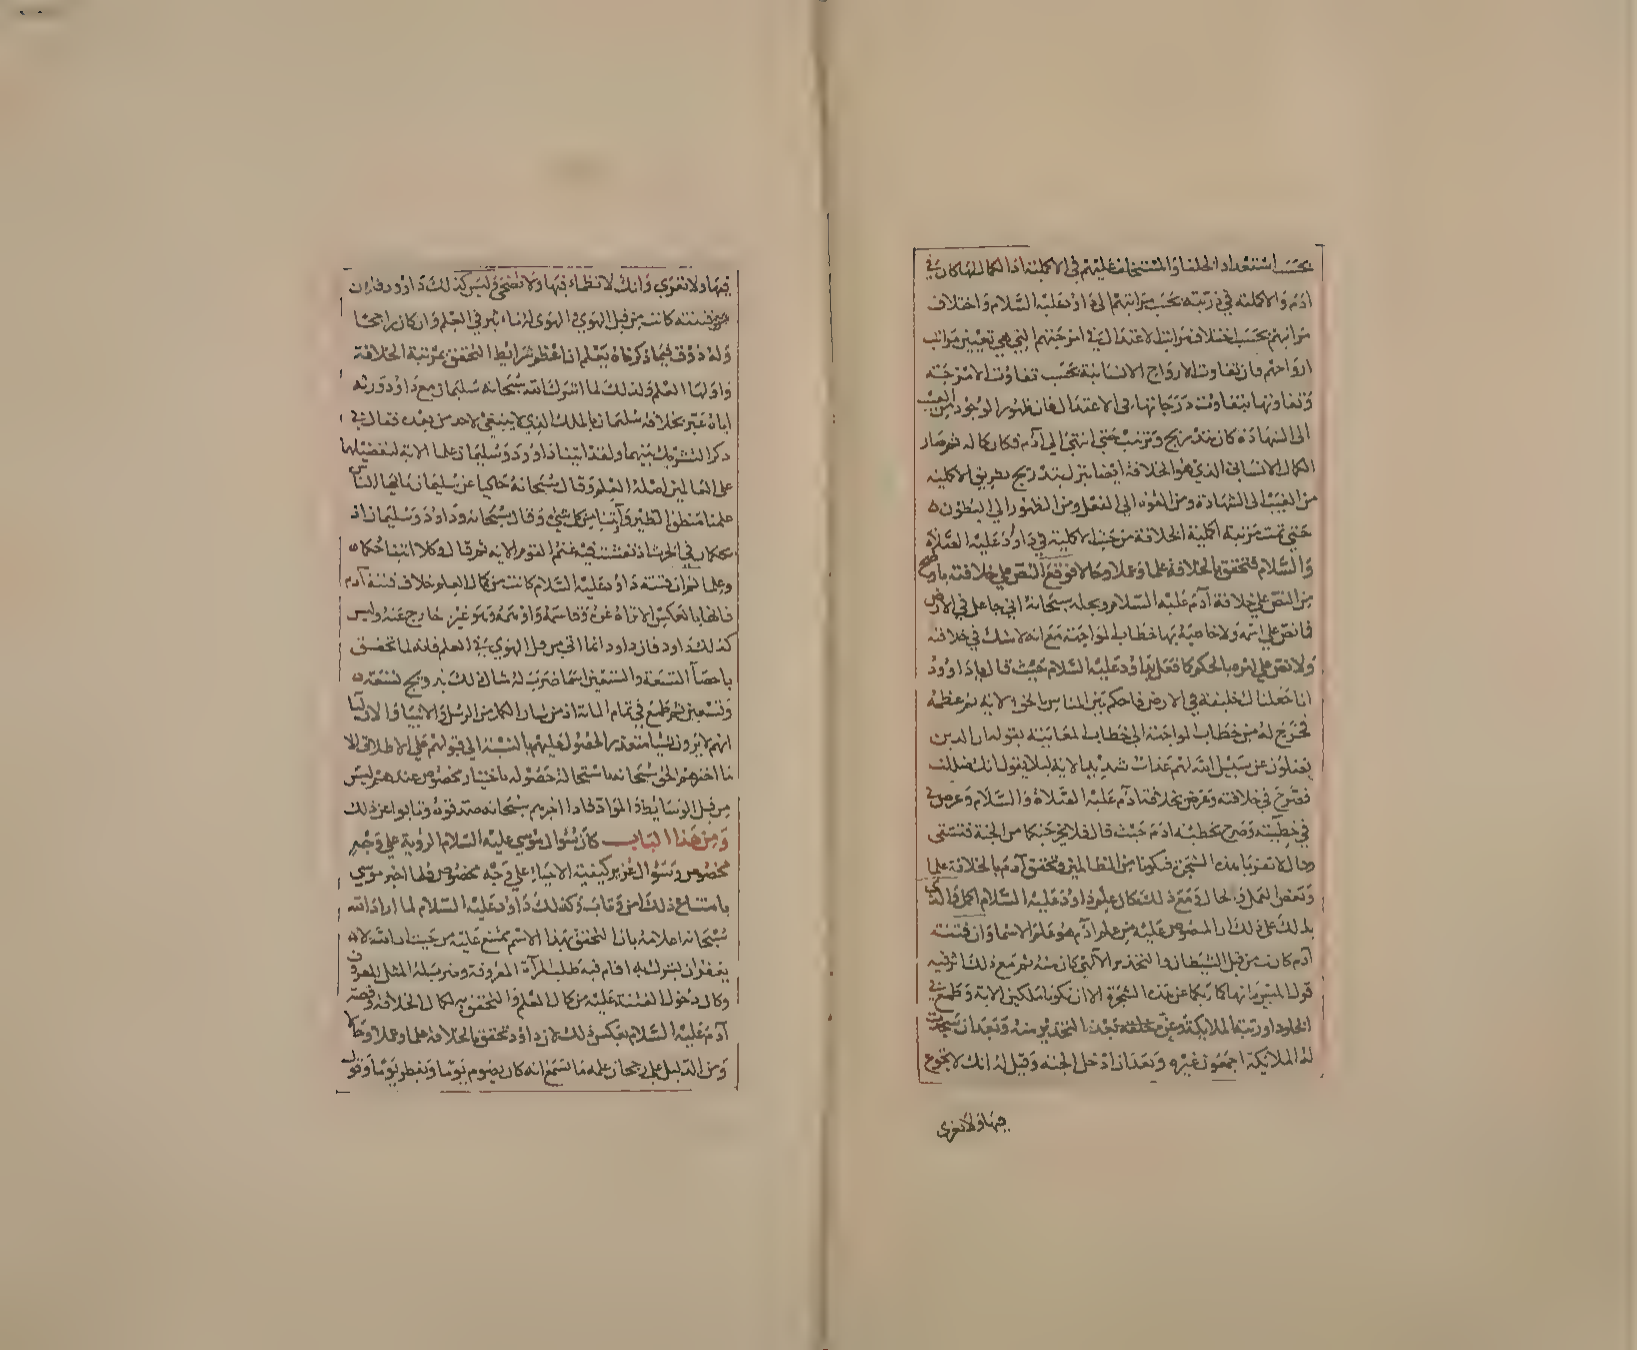 بحسب استعداد الخلفا والمستخلف عليهم في الاكملية اذ الكمال لها كان في
آدم والاكملية في ذريته بحسب مراتبهم الى داود عليه السلام واختلاف
مراتبهم بحسب اختلاف مراتب الاعتدال في امزجتهم التي هي تعيين مراتب
ارواحهم فان تفاوت الارواح الانسانية بحسب تفاوت الامزجة
وتفاوتها بتفاوت درجاتها في الاعتدال فان ظهور الوجود من الغيب
الى الشهادة كان بتدريج وترتيب حتى انتهى الى آدم وكان كماله ثم صار
الكمال الانساني الذي هو الخلافة ايضا يتنزل بتدريج بطريق الاكملية
من الغيب الى الشهادة ومن القوة الى الفعل ومن الظهور الى البطون
حتى تمت مرتبة اكملية الخلافة من حيث الاكملية في داود عليه الصلاة
والسلام فتحقق بالخلافة علما وعملا وحالا فوقع النص على خلافته باوضح
من النص على خلافة آدم عليه السلام وبجله سبحانه اني جاعل في الارض
فما نص على اسمه ولا خاصية بها خطاب المواجهة مع انه لا شك في خلافته
ولا نص على امره بالحكم كما فعل بداود عليه السلام حيث قال يا داوود
انا جعلناك خليفة في الارض فاحكم بين الناس بالحق الاية ثم عظمه
فخرج له من خطاب المواجهة الى خطاب المعاينة بقوله ان الذين
يضلون عن سبيل الله لهم عذاب شديد الاية ليلا يقول انك ضللت
فصرح في خلافته وعرض بخلافة آدم عليه الصلاة والسلام وعرض في
في خطيئته وصرح بخطيئة آدم حيث قال فلا يخرجنكما من الجنة فتشقى
وقال لا تقربا هذه الشجرة فتكونا من الظالمين وتحقق آدم بالخلافة علما
وبعض العمل والحال ومع ذلك كان علم داود عليه السلام اكمل والدليل
بذلك على ذلك ان المنصوص عليه من علم آدم هو علم الاسما وان فتنته
آدم كانت من قبل الشيطان والتحذير الآلهي كان منه ثم مع ذلك اثر فيه
قول ابليس ما نهاكما ربكما عن هذه الشجرة الا ان تكونا ملكين الاية وطمع في
الخلود ورتبة الملايكة وعن مخالفته بعد التحذير منه وبعد ان سجدت
له الملائكة اجمعون غيره وبعد ان ادخل الجنة وقيل له ان لك لا تجوع
فيها ولا تعرى
فيها ولا تعرى وانك لا تظماء فيها ولا تضحى وليس كذلك داوود فان
فتنته كانت من قبل الهوى والهوى له اثر في العلم وان كان راجحا
وله ذوق فيما ذكرناه يعلم ان اعظم شرائط التحقق بمرتبة الخلافة
واولها العلم ولذلك لما اشرك الله سبحانه سليمان مع داوود ورثه
اياه عبر بخلافة سليمان بالملك الذي لا ينبغي لاحد من بعده فقال في
ذكر التشريك بينهما ولقد اتينا داوود وسليمان علما الاية لتفضيلها
على العالمين اصله العلم وقال سبحانه حاكيا عن سليمان يا ايها الناس
علمنا منطق الطير وآتينا من كل شيء وقال سبحانه وداود وسليمان اذ
يحكمان في الحرث اذ نفشت فيه غنم القوم الاية ثم قال وكلا اتينا حكما
وعلما ثم ان فتنة داود عليه السلام كانت من كمال العلم خلاف فتنة آدم
فانها بالعكس الا تراه غره وقاسمه واوهمه وهو غير خارج عنه وليس
كذلك داود فان داود انما اتى من قبل الهوى في العلم فانه لما تحقق
باحصآ التسعة والتسعين اسما ضرب له شان لك بتزويج تسعة
وتسعين ثم طمع في تمام المائة اذ من شان الكمل من الرسل والانبيا والاوليا
انهم لا يرون شيا متعذر الحصول عليهم بالنسبة الى قبولهم على الاطلاق الا
ما اخبرهم الحق سبحانه باستحالة حصوله باختيار مخصوص عندهم ليس
من قبل الوسايط والمواد فاذا اخبرهم سبحانه صدقوه وتابوا عن ذلك
ومن هذا الباب كان سؤال موسى عليه السلام الروية على وجه
مخصوص وسؤال عزير كيفية الاحيا على وجه مخصوص فلما اخبر موسى
بامتناع ذلك امن وتاب وكذلك داود عليه السلام لما اراد الله
سبحانه اعلامه بان التحقق بهذا الاسم يمتنع عليه من حيث ان الله لا
يغفر ان يشرك به اقام فيه طلب المرآة المعروفة وضرب له المثل المعروف
وكان دخول الفتنة عليه من كمال العلم والتحقق به لكمال الخلافة وقصة
آدم عليه السلام بعكس ذلك لان داود تحقق بالخلافة علما وعملا وحالا
ومن الدليل على رجحان علمه ما نسمع انه كان يصوم يوما ويفطر يوما وقول